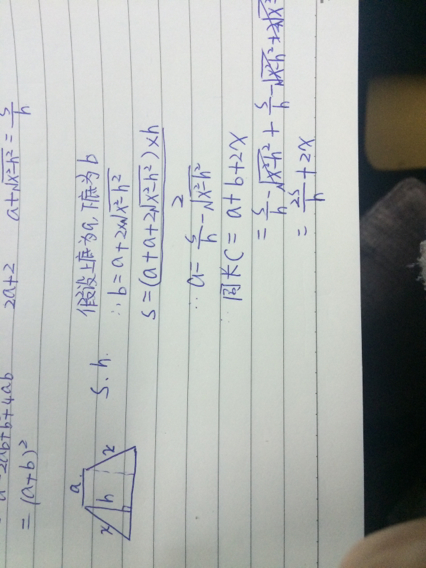 a²-2ab+b²+4ab
= (a+b)²
2a+2
a+√x²-h² = S/h
a
x
h
x
S.h.
假设上底为a,下底为b
∴b=a+2√x²-h²
S=(a+a+2√x²-h²)×h
2
∴a=S/h-√x²-h²
周长C=a+b+2x
=S/h-√x²-h²+S/h-√x²-h²+2√x²
=2S/h+2x